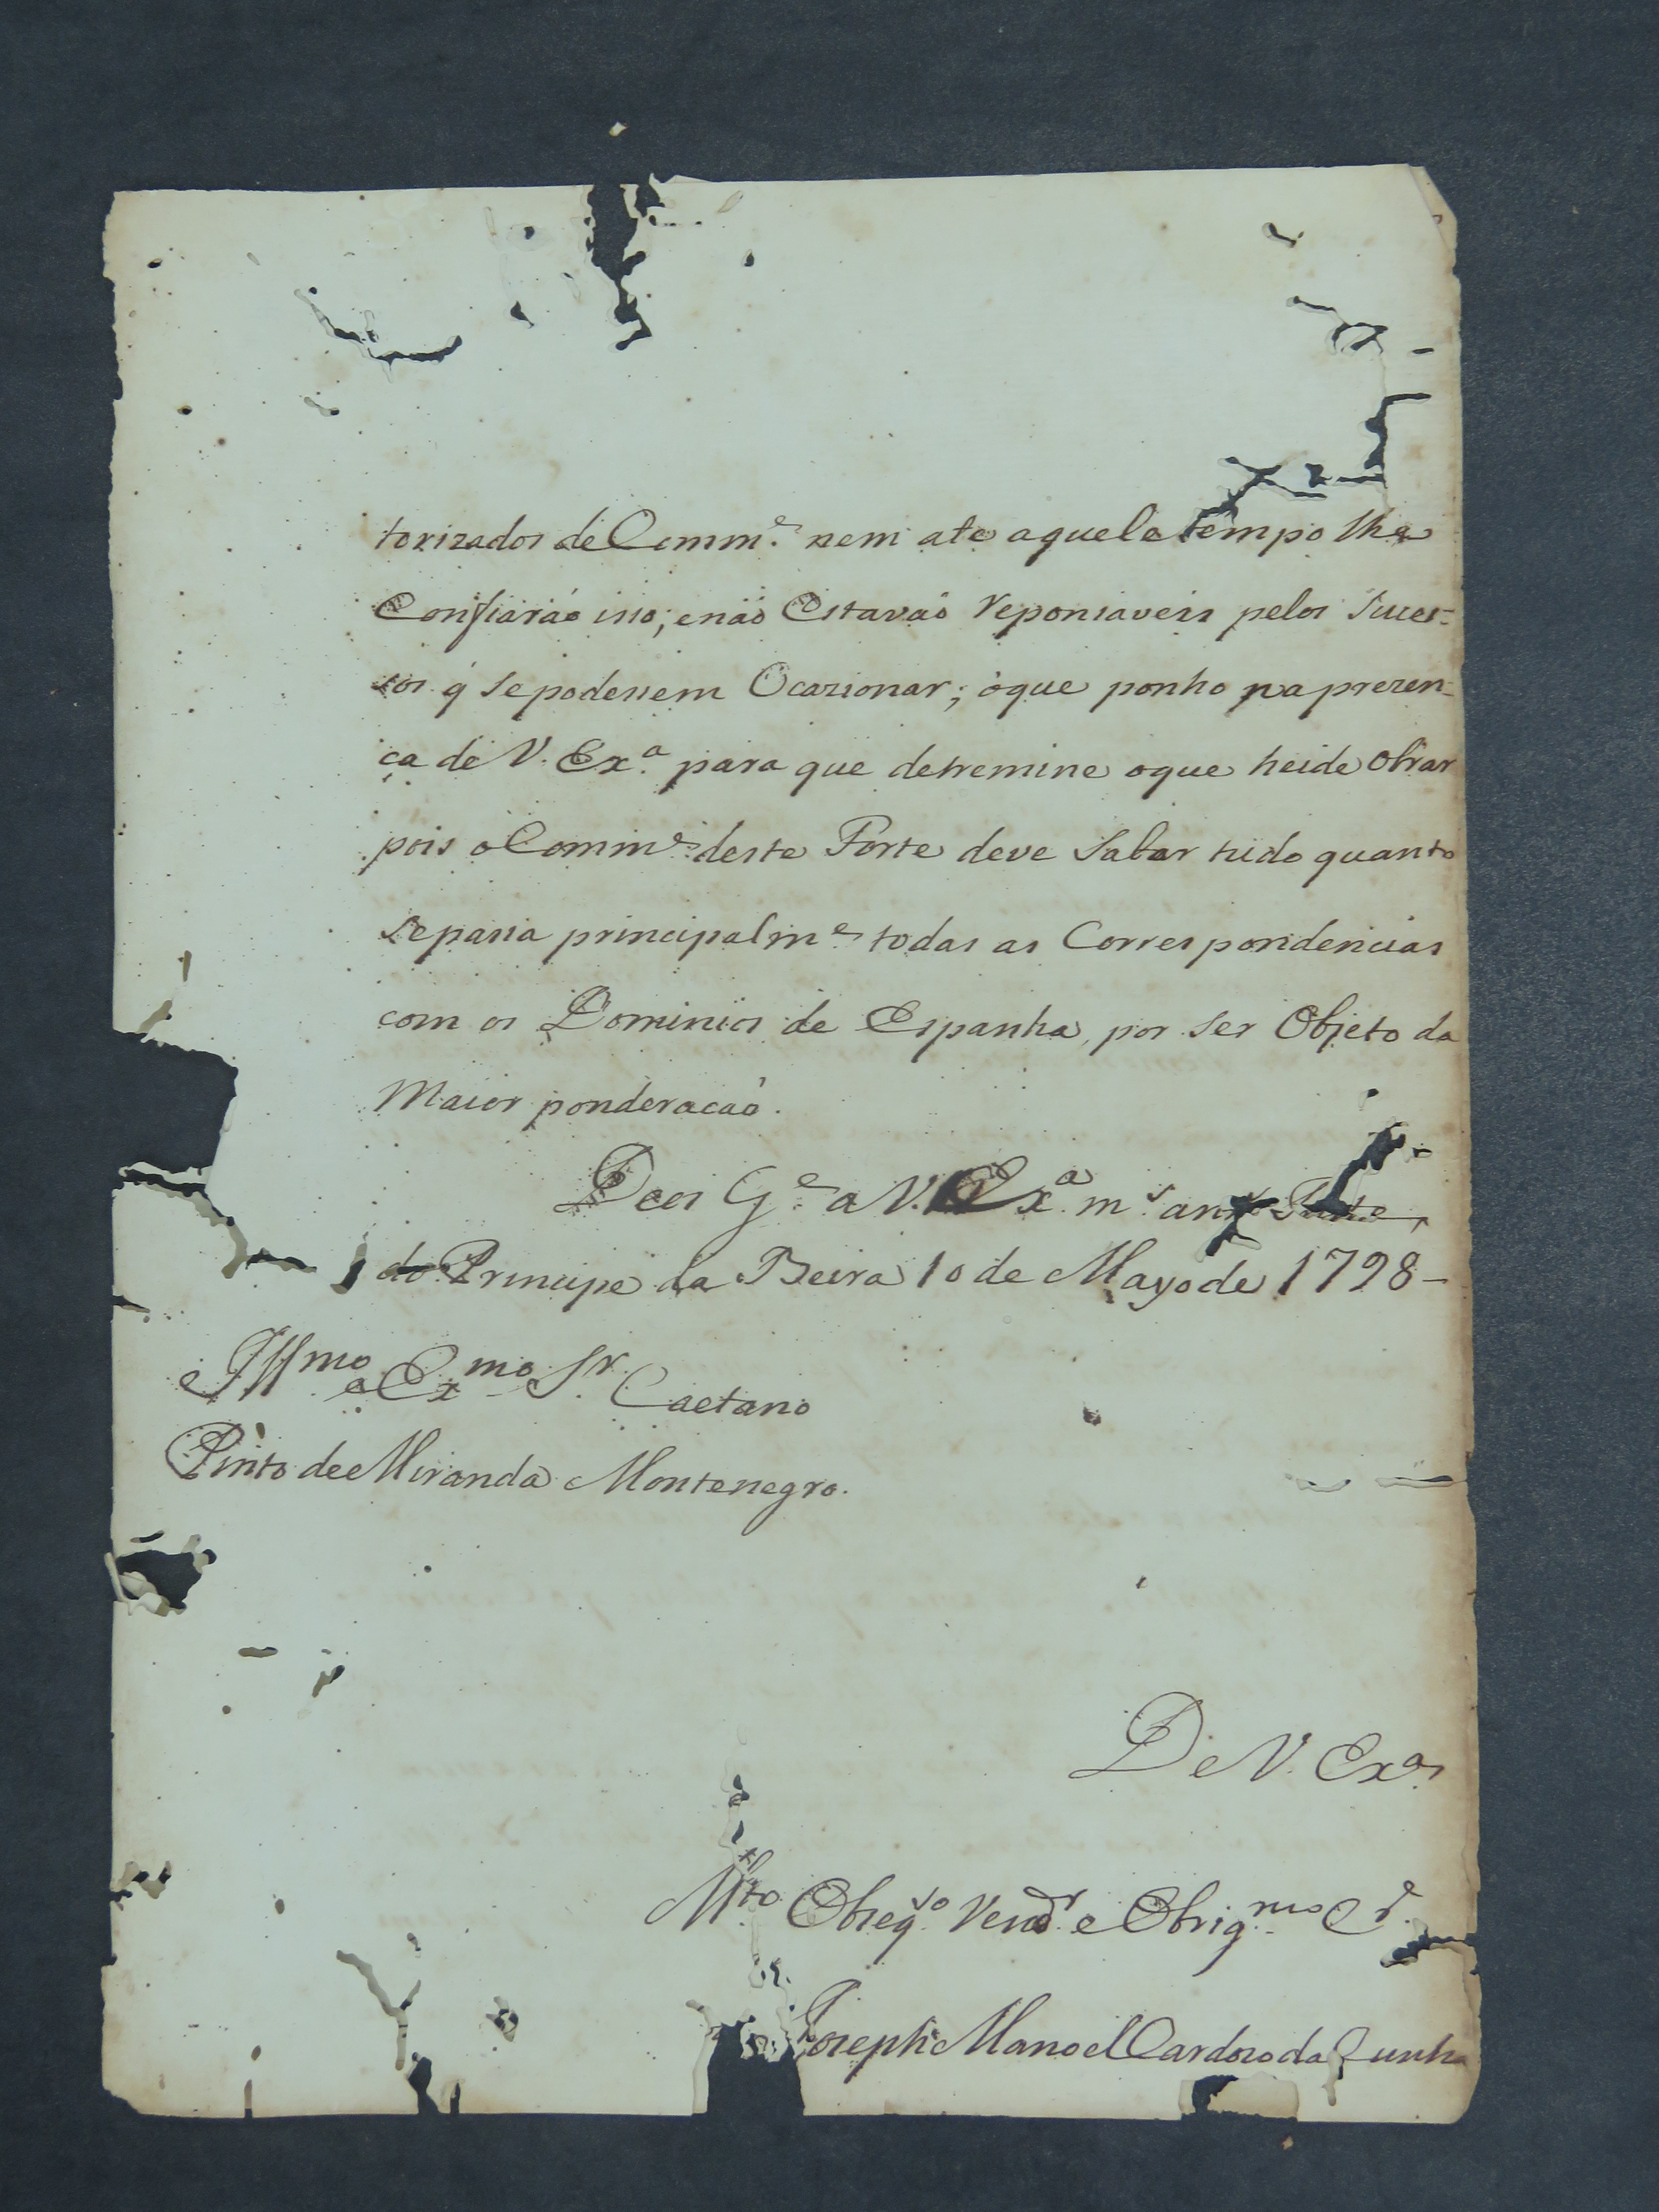 torizados de Comm.e nem ate aquele tempo lhe
Confiaráo isso; enaõ Estavaõ Reponsaveis pelos Suces-
sos q̃ Sepodessem Ocazionar; oque ponho na prezen-
ça de V. Ex.a para que detremine oque heide Obrar
pois o Comm.e deste Forte deve Saber tudo quanto
Sepassa principalm.e todas as Correspondencias
com os Dominios de Espanha, por Ser Objeto da
Maior ponderacaõ.
Deos G.e a V. Ex.a m.s ann.s Forte
do Principe da Beira 10 de Mayo de 1798-
Illmo e Exmo Sr. Caetano
Pinto de Miranda Montenegro.
De V. Exa.
M.to Obzeq.so Vend.r e Obrig.mo C.e
Joseph Manoel Cardozo da Cunha